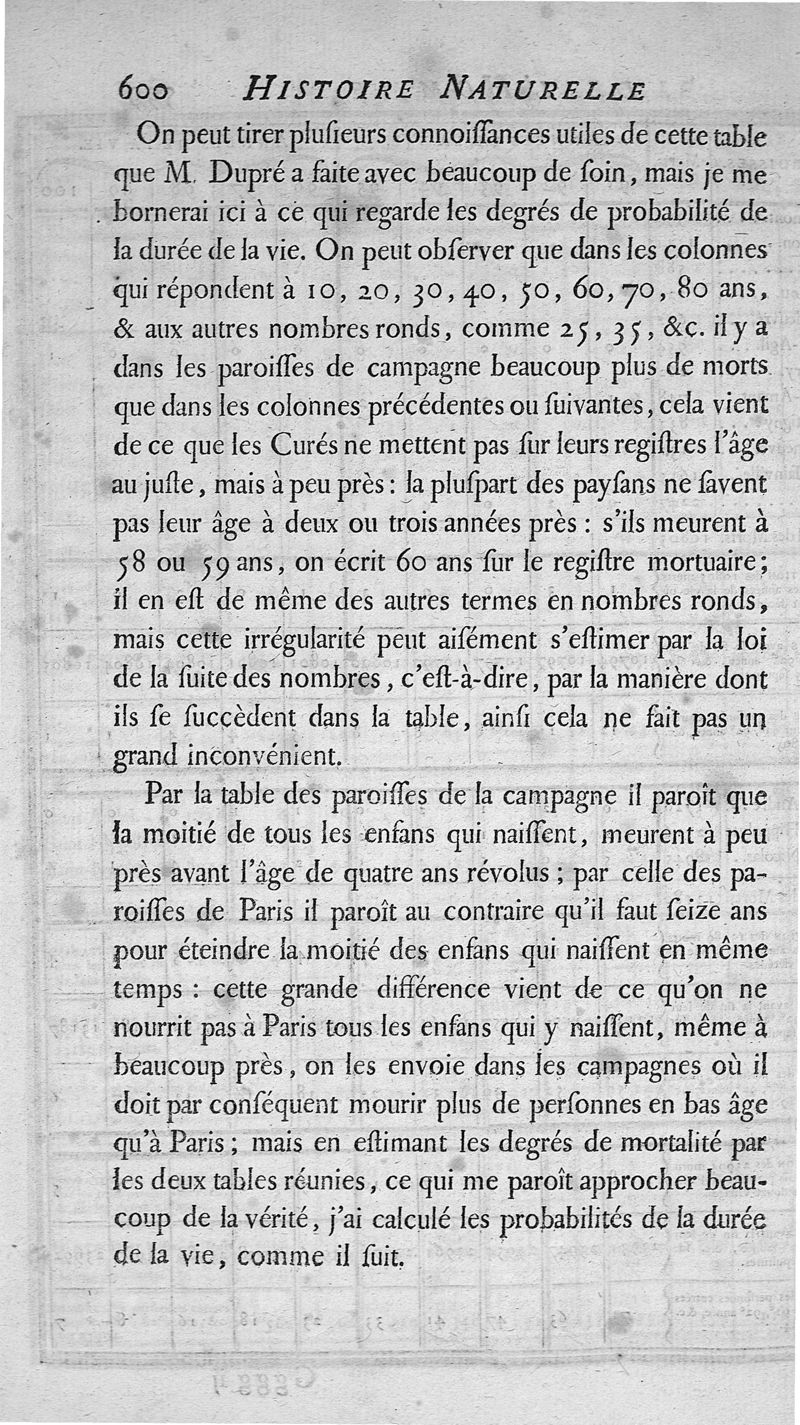 600 HISTOIRE NATURELLE
On peut tirer pluſieurs connoiſſances utiles de cette table
que M. Dupré a faite avec beaucoup de ſoin, mais je me
bornerai ici à ce qui regarde les degrés de probabilité de
la durée de la vie. On peut obſerver que dans les colonnes
qui répondent à 10, 20, 30, 40, 50, 60, 70, 80 ans,
& aux autres nombres ronds, comme 25, 35, &c. il y a
dans les paroiſſes de campagne beaucoup plus de morts
que dans les colonnes précédentes ou ſuivantes, cela vient
de ce que les Curés ne mettent pas ſur leurs regiſtres l'âge
au juſte, mais à peu près : la pluſpart des payſans ne ſàvent
pas leur âge à deux ou trois années près : s'ils meurent à
58 ou 59 ans, on écrit 60 ans ſur le regiſtre mortuaire;
il en eſt de même des autres termes en nombres ronds,
mais cette irrégularité peut aiſément s'eſtimer par la loi
de la ſuite des nombres, c'eſt-à-dire, par la manière dont
ils ſe ſuccèdent dans la table, ainſi cela ne fait pas un
grand inconvénient.
Par la table des paroiſſes de la campagne il paroît que
la moitié de tous les enfans qui naiſſent, meurent à peu
près avant l'âge de quatre ans révolus ; par celle des pa-
roiſſes de Paris il paroît au contraire qu'il faut ſeize ans
pour éteindre la moitié des enfans qui naiſſent en même
temps : cette grande différence vient de ce qu'on ne
nourrit pas à Paris tous les enfans qui y naiſſent, même à
beaucoup près, on les envoie dans les campagnes où il
doit par conſéquent mourir plus de perſonnes en bas âge
qu'à Paris ; mais en eſtimant les degrés de mortalité par
les deux tables réunies, ce qui me paroît approcher beau-
coup de la vérité, j'ai calculé les probabilités de la durée
de la vie, comme il ſuit.